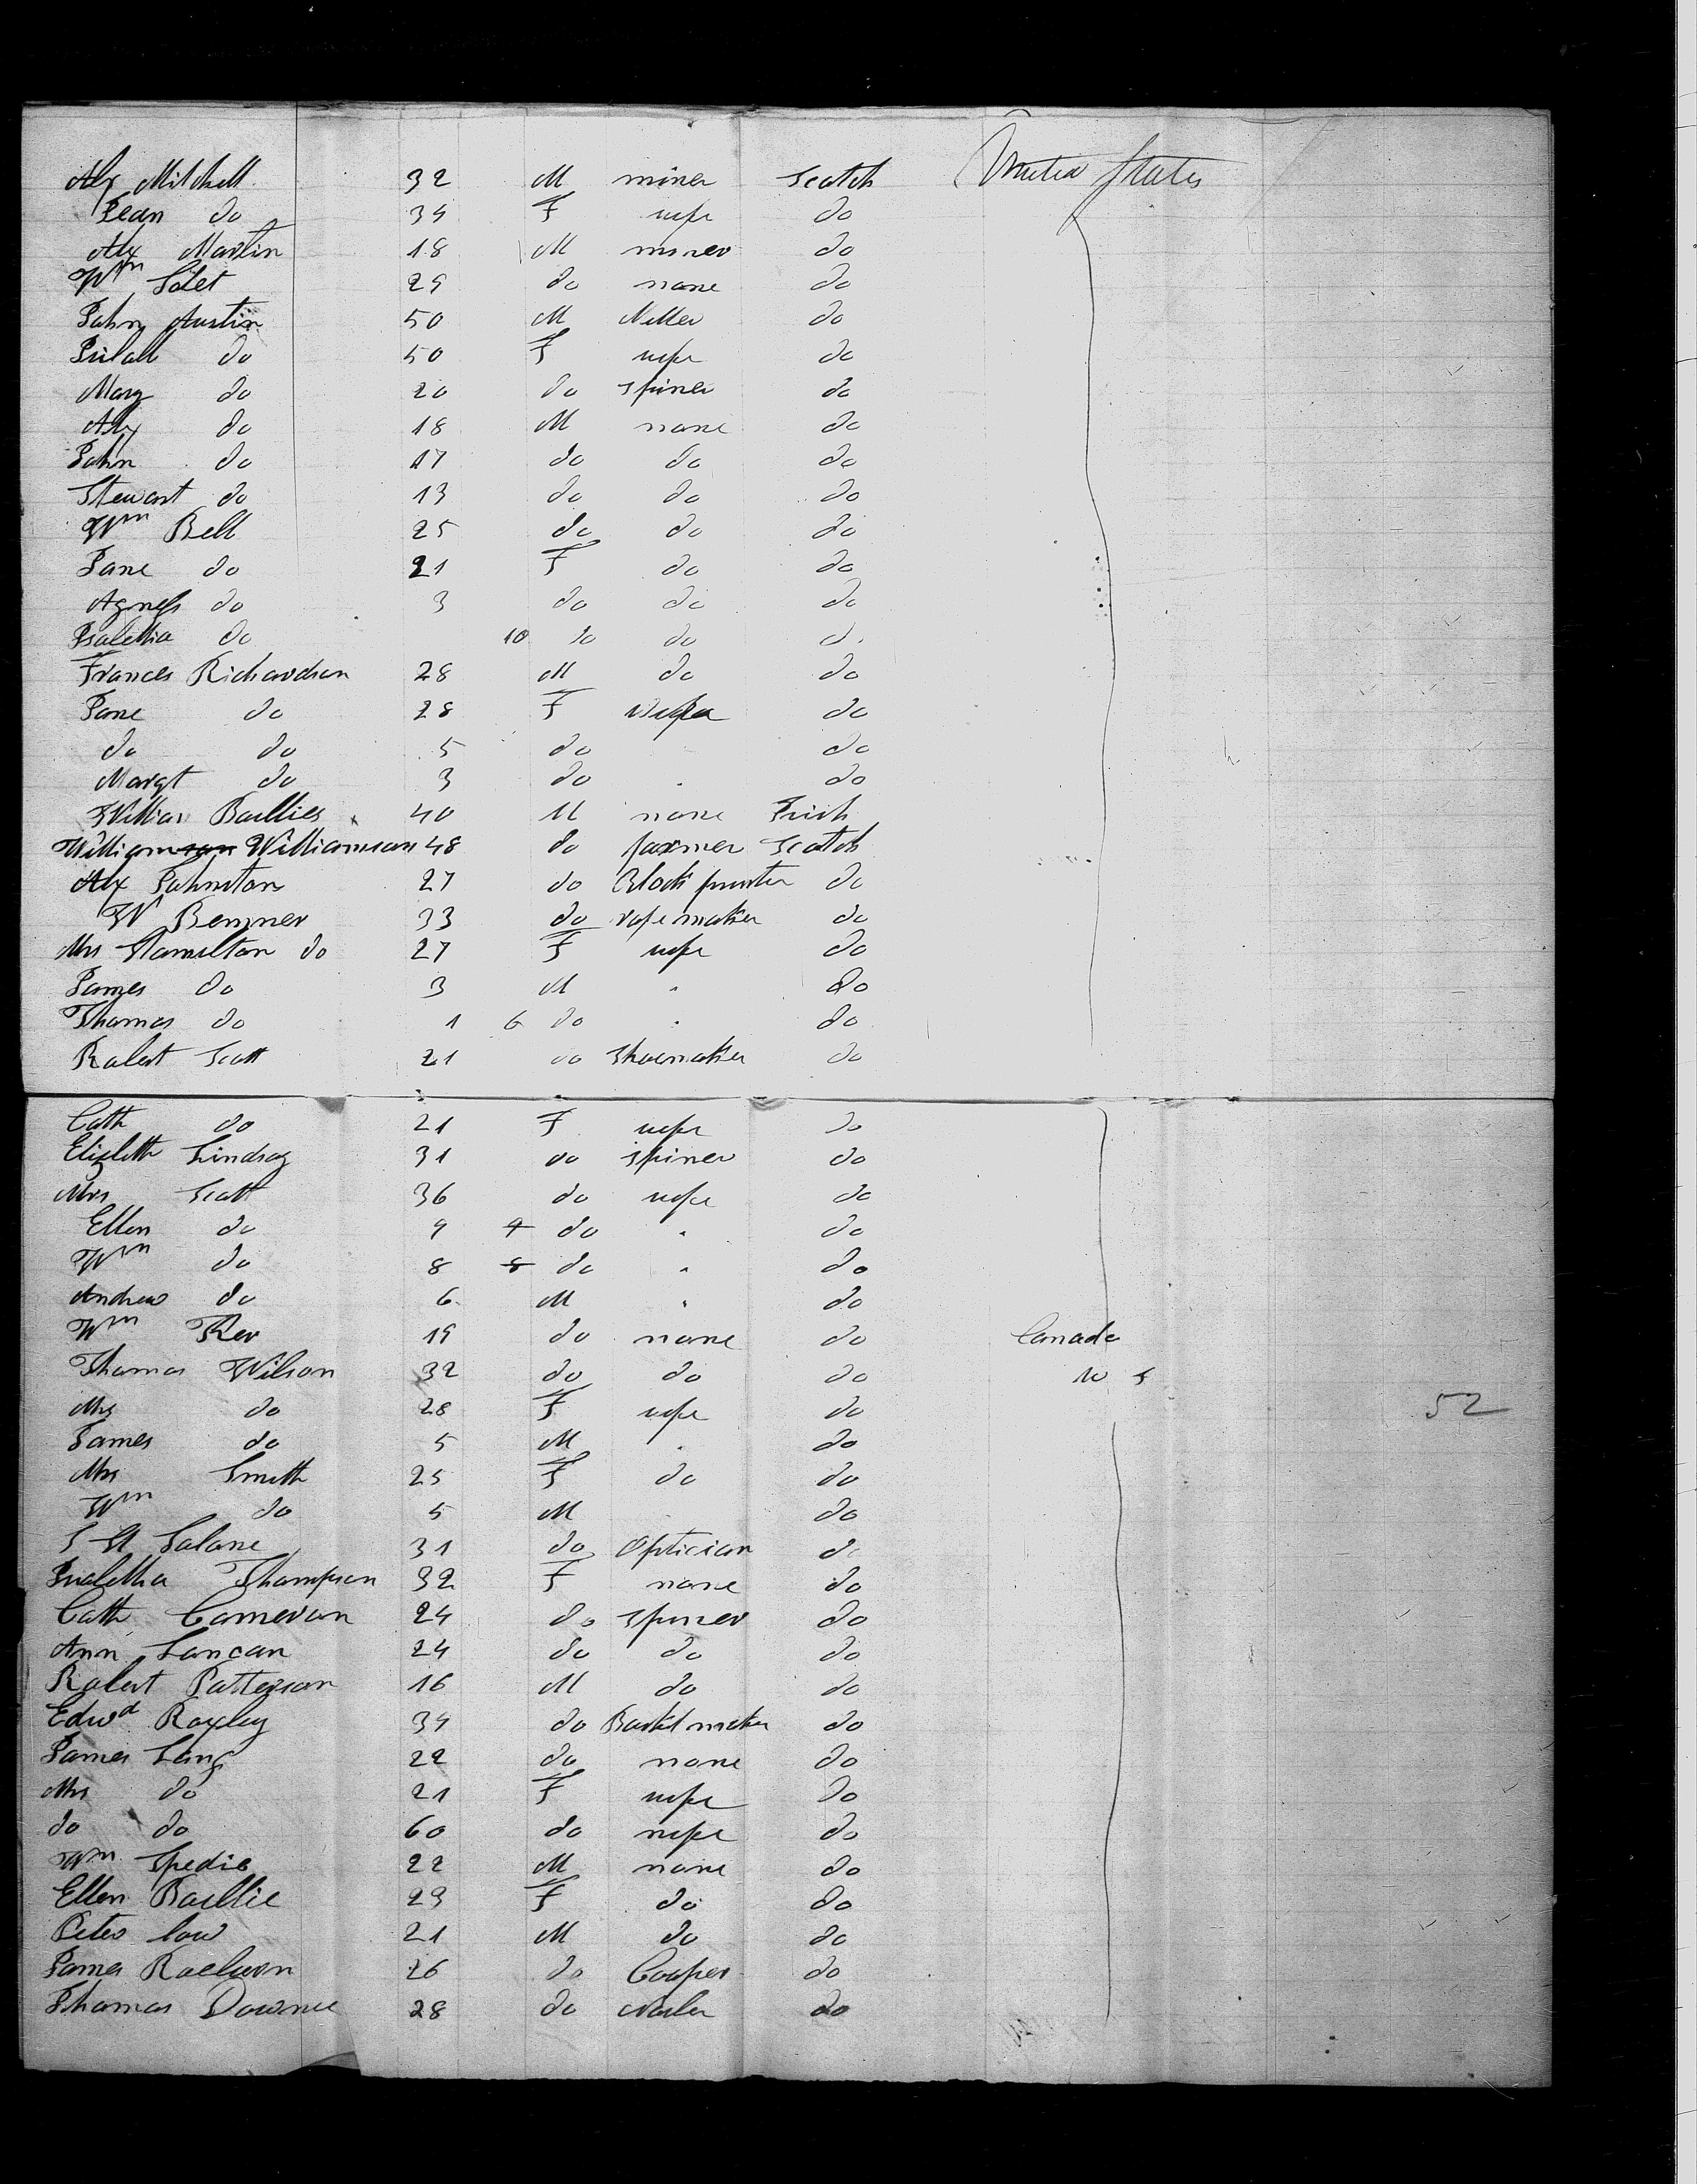 Alex Mitchell 32 M miner Scotch United States
Jean do 34 F wife do
Alex Martin 18 M miner do
Wm 29 do none do
John Austin 50 M Miller do
do 50 F wife do
Mary do 20 do spiner do
Alex do 18 M none do
John do 17 do do do
Stewart do 13 do do do
Wm Bell 25 do do do
Jane do 21 F do do
Agness do 3 do do do
Isabella do 10 do do do
Frances Richardson 28 M do do
Jane do 28 F wife do
do do 5 do do
Margt do 3 do do
William Baillies 40 M none Irish
Williamson Williamson 48 do farmer Scotch
Alex Johnston 27 do Block printer do
W Bemner 33 do rope maker do
Mrs Hamilton do 27 F wife do
James do 3 M " do
Thomas do 1 6 do " do
Robert Scott 21 do Shoemaker do
Cath do 21 F wife do
Elizbeth Lindsay 31 do spiner do
Mrs Scott 36 do wife do
Ellen do 9 9 do " do
Wm do 8 8 do " do
Andrew do 6 M " do
Wm Ker 19 do none do Canada
Thomas Wilson 32 do do do W S
Mrs do 28 F wife do 52
James do 5 M " do
Mrs Smith 25 F do do
Wm do 5 M do
Salane 31 do Optician do
Isabella Thompson 32 F none do
Cath Cameron 24 do spiner do
Ann 24 do do do
Robert Patterson 16 M do do
Edwd Roxley 34 do Baskt maker do
James Lang 22 do none do
Mrs do 21 F wife do
do do 60 do wife do
Wm Spedie 22 M none do
Ellen Baillie 23 F do do
Peter Low 21 M do do
James 26 do Cooper do
Thomas Downie 28 do do